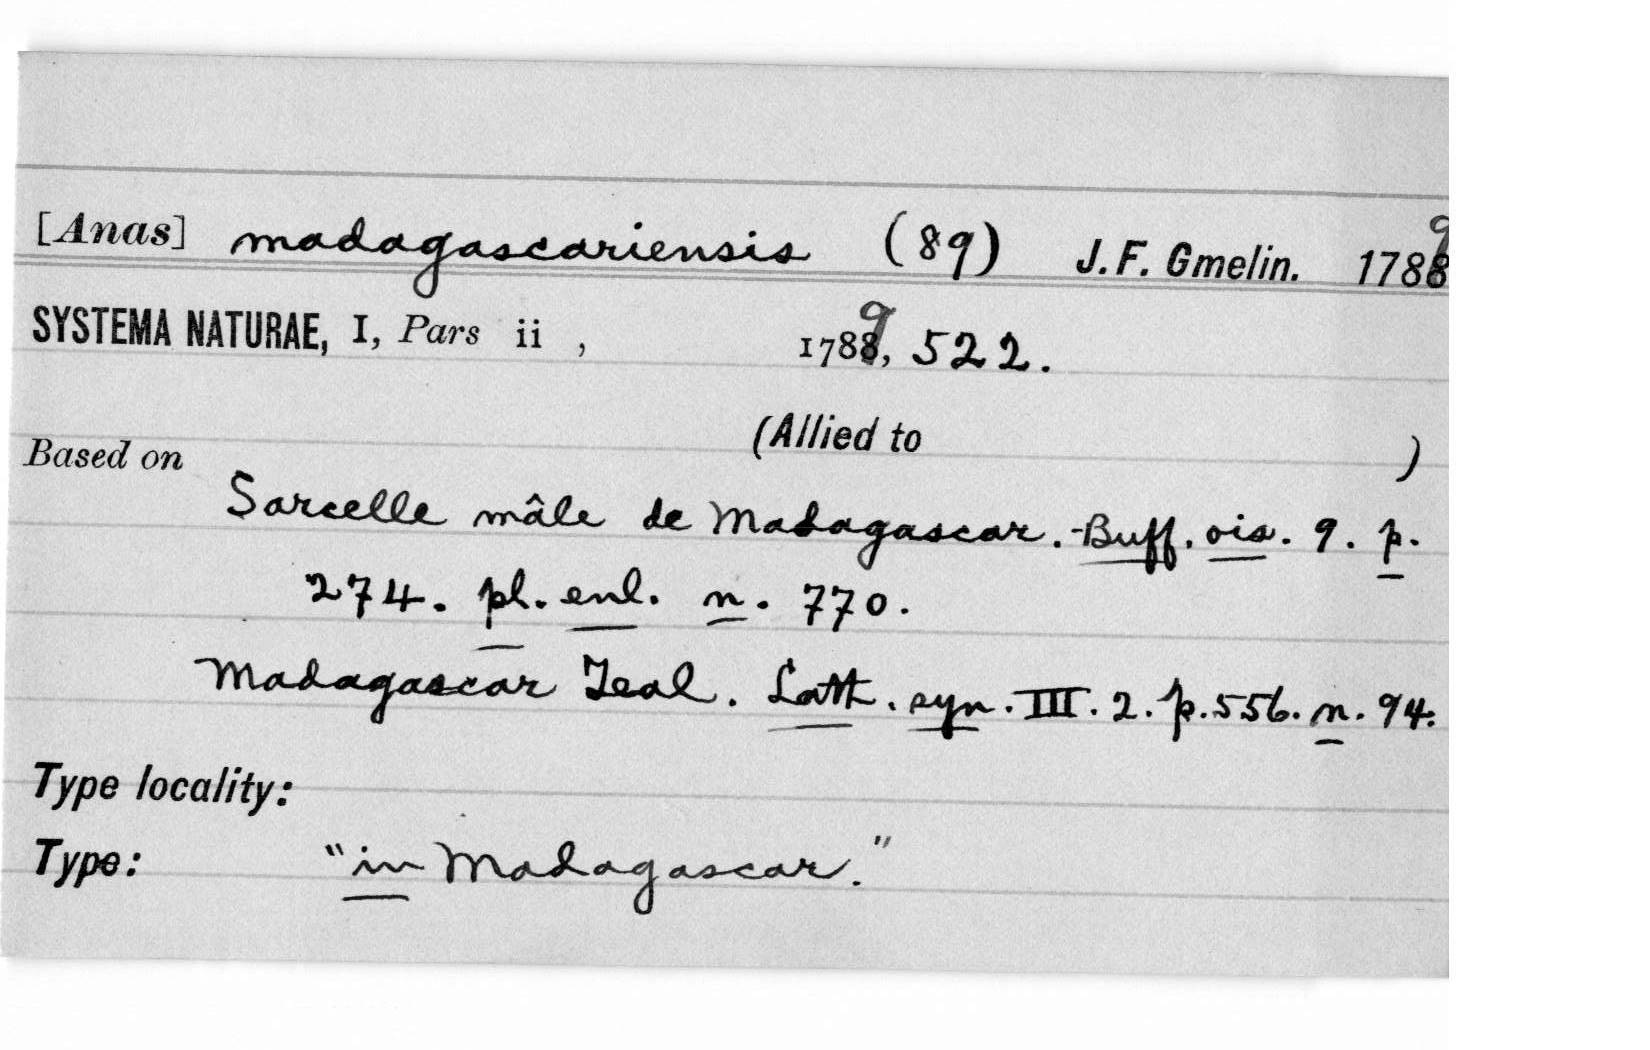 [Anas] madagascariensis (89) J. F. Gmelin. 1789
SYSTEMA NATURAE, I, Pars ii , 1789, 522.
(Allied to )
Based on
Sarcelle mâle de Madagascar. - Buff. ois. 9. p.
274. pl. enl. n. 770.
Madagascar Teal. Lath. syn. III. 2. p. 556. n. 94.
Type locality:
Type: "in Madagascar."